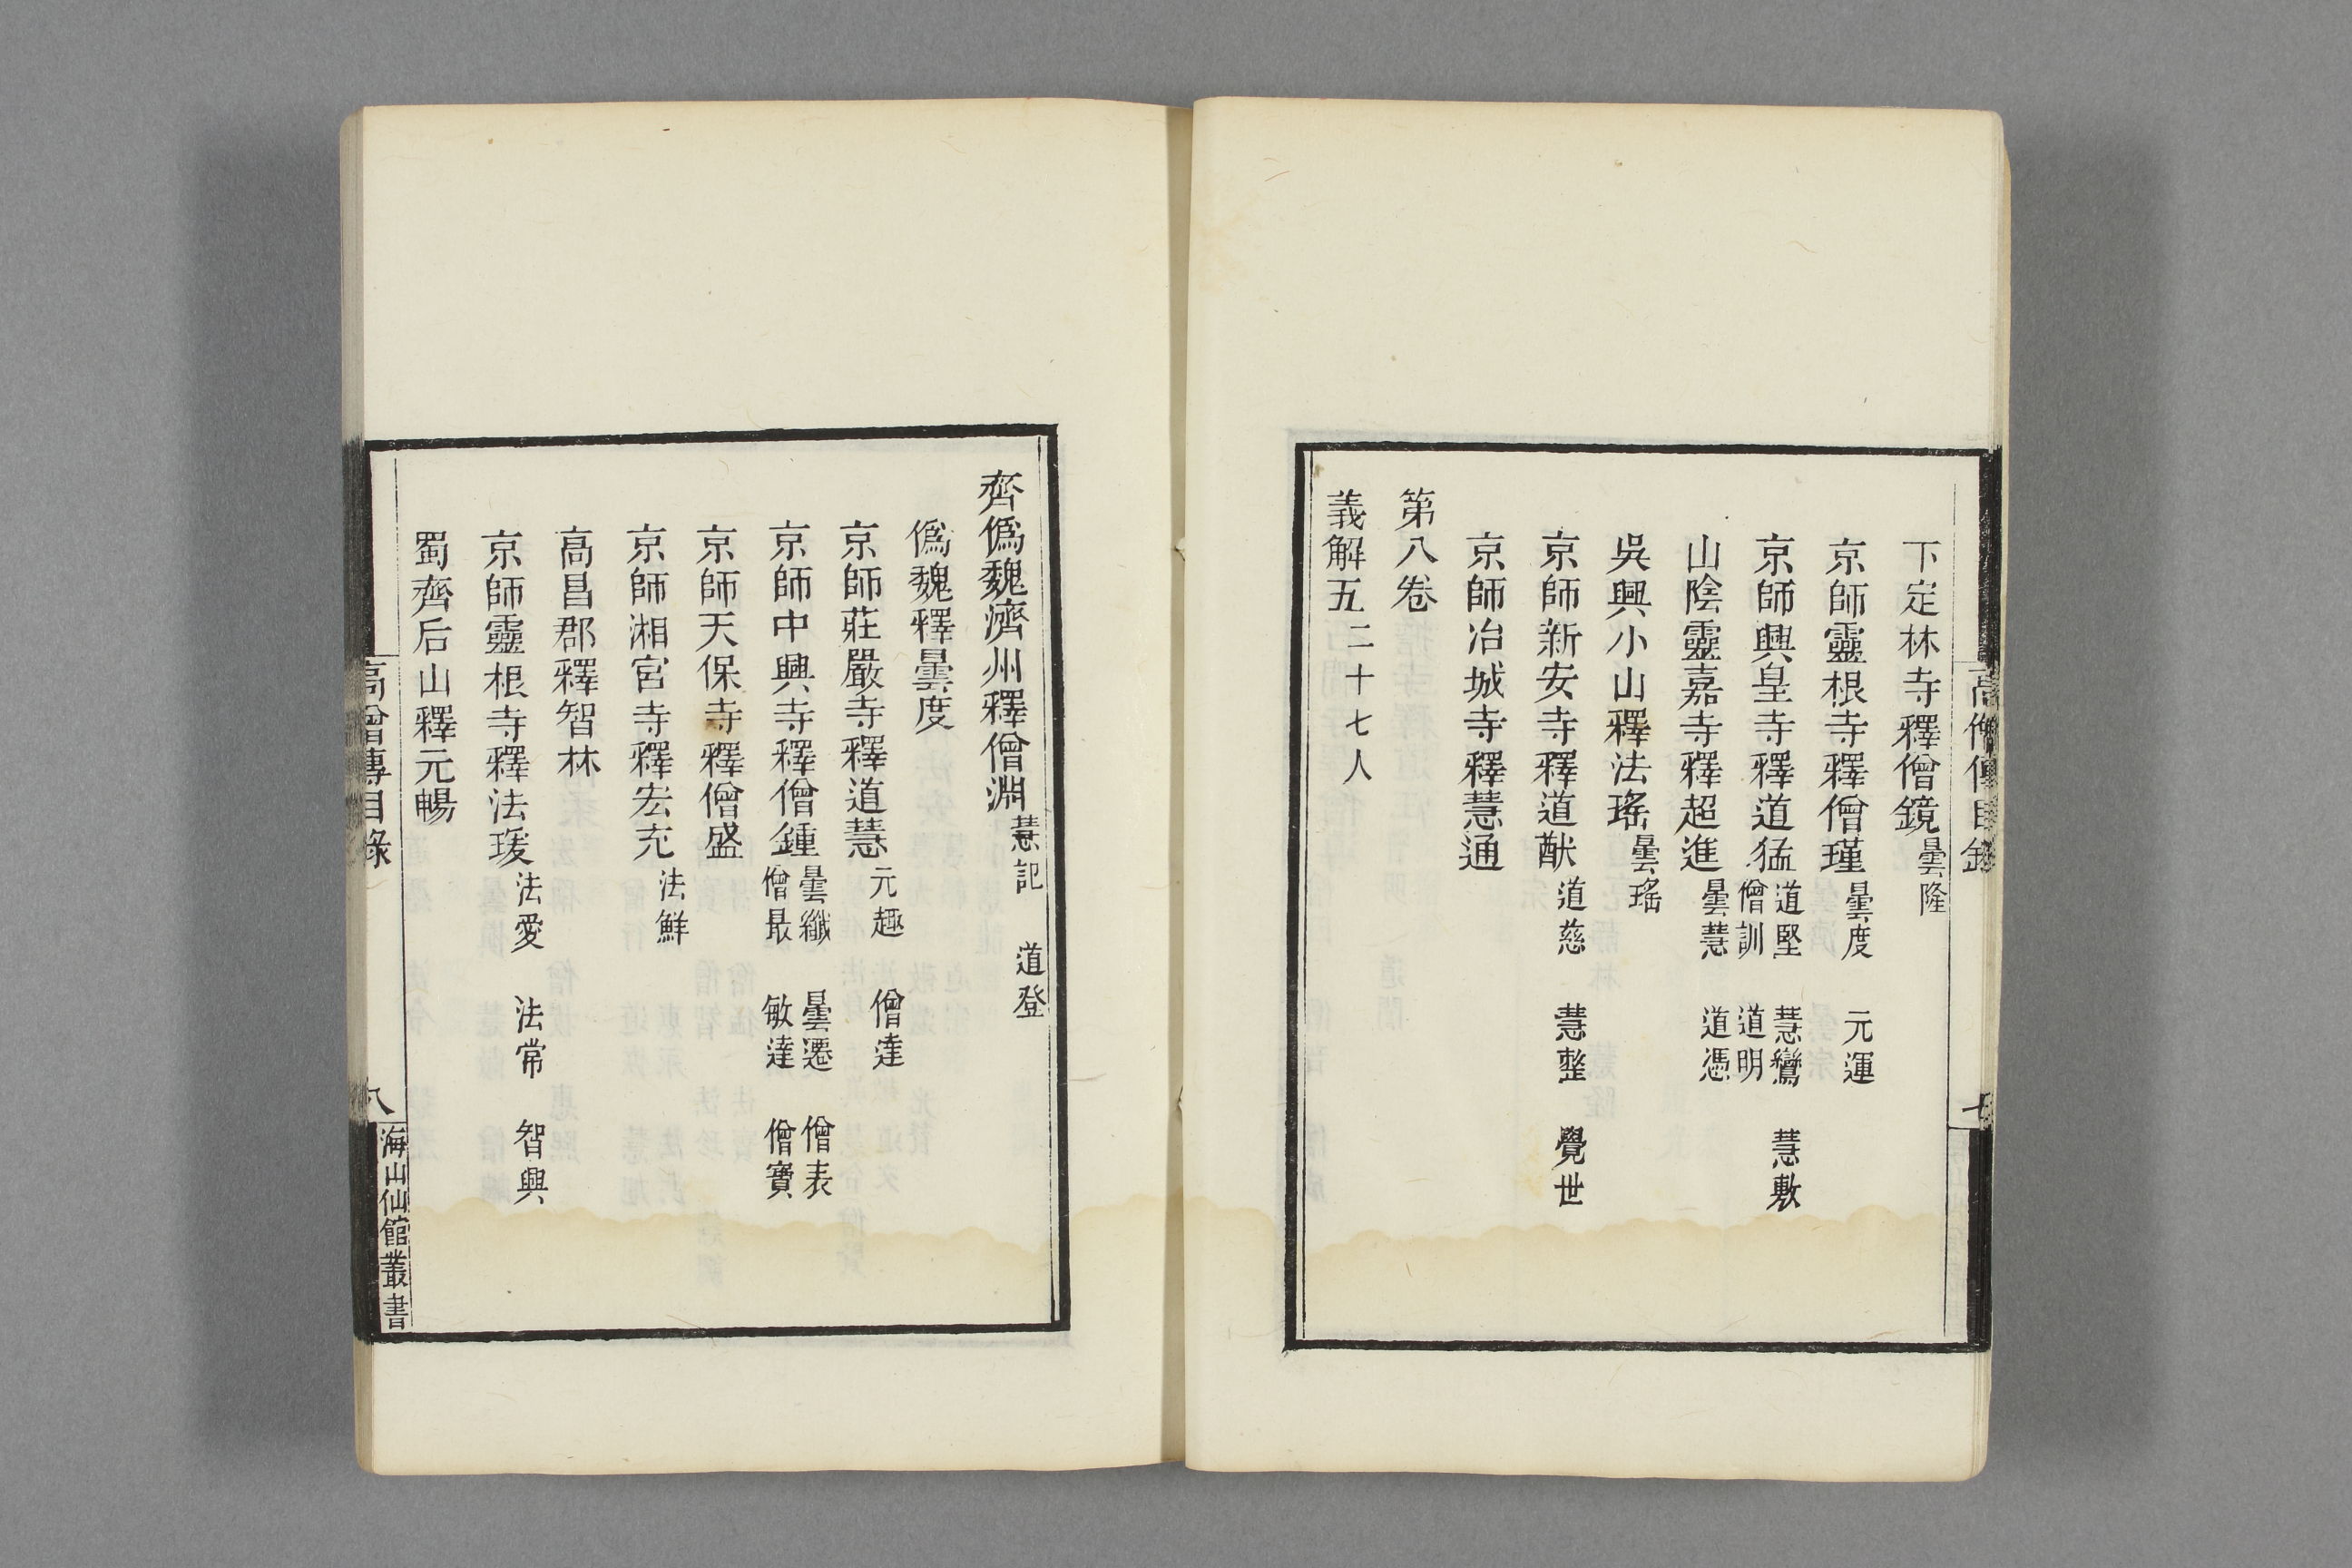 下定林寺釋僧鏡 曇隆
京師靈根寺釋僧瑾 曇度 元運
京師興皇寺釋道猛 道堅 慧鸞 慧敷 僧訓 道明
山陰靈嘉寺釋超進 曇慧 道憑
吳興小山釋法瑤 曇瑤
京師新安寺釋道猷 道慈 慧整 覺世
京師冶城寺釋慧通
第八卷
義解五 二十七人
高僧傳目錄 七
齊僞魏濟州釋僧淵 慧記 道登
僞魏釋曇度
京師莊嚴寺釋道慧 元趣 僧達
京師中興寺釋僧鍾 曇纖 曇遷 僧表 僧最 敏達 僧寶
京師天保寺釋僧盛
京師湘宮寺釋宏充 法鮮
高昌郡釋智林
京師靈根寺釋法瑗 法愛 法常 智興
蜀齊后山釋元暢
高僧傳目錄 八 海山仙館叢書